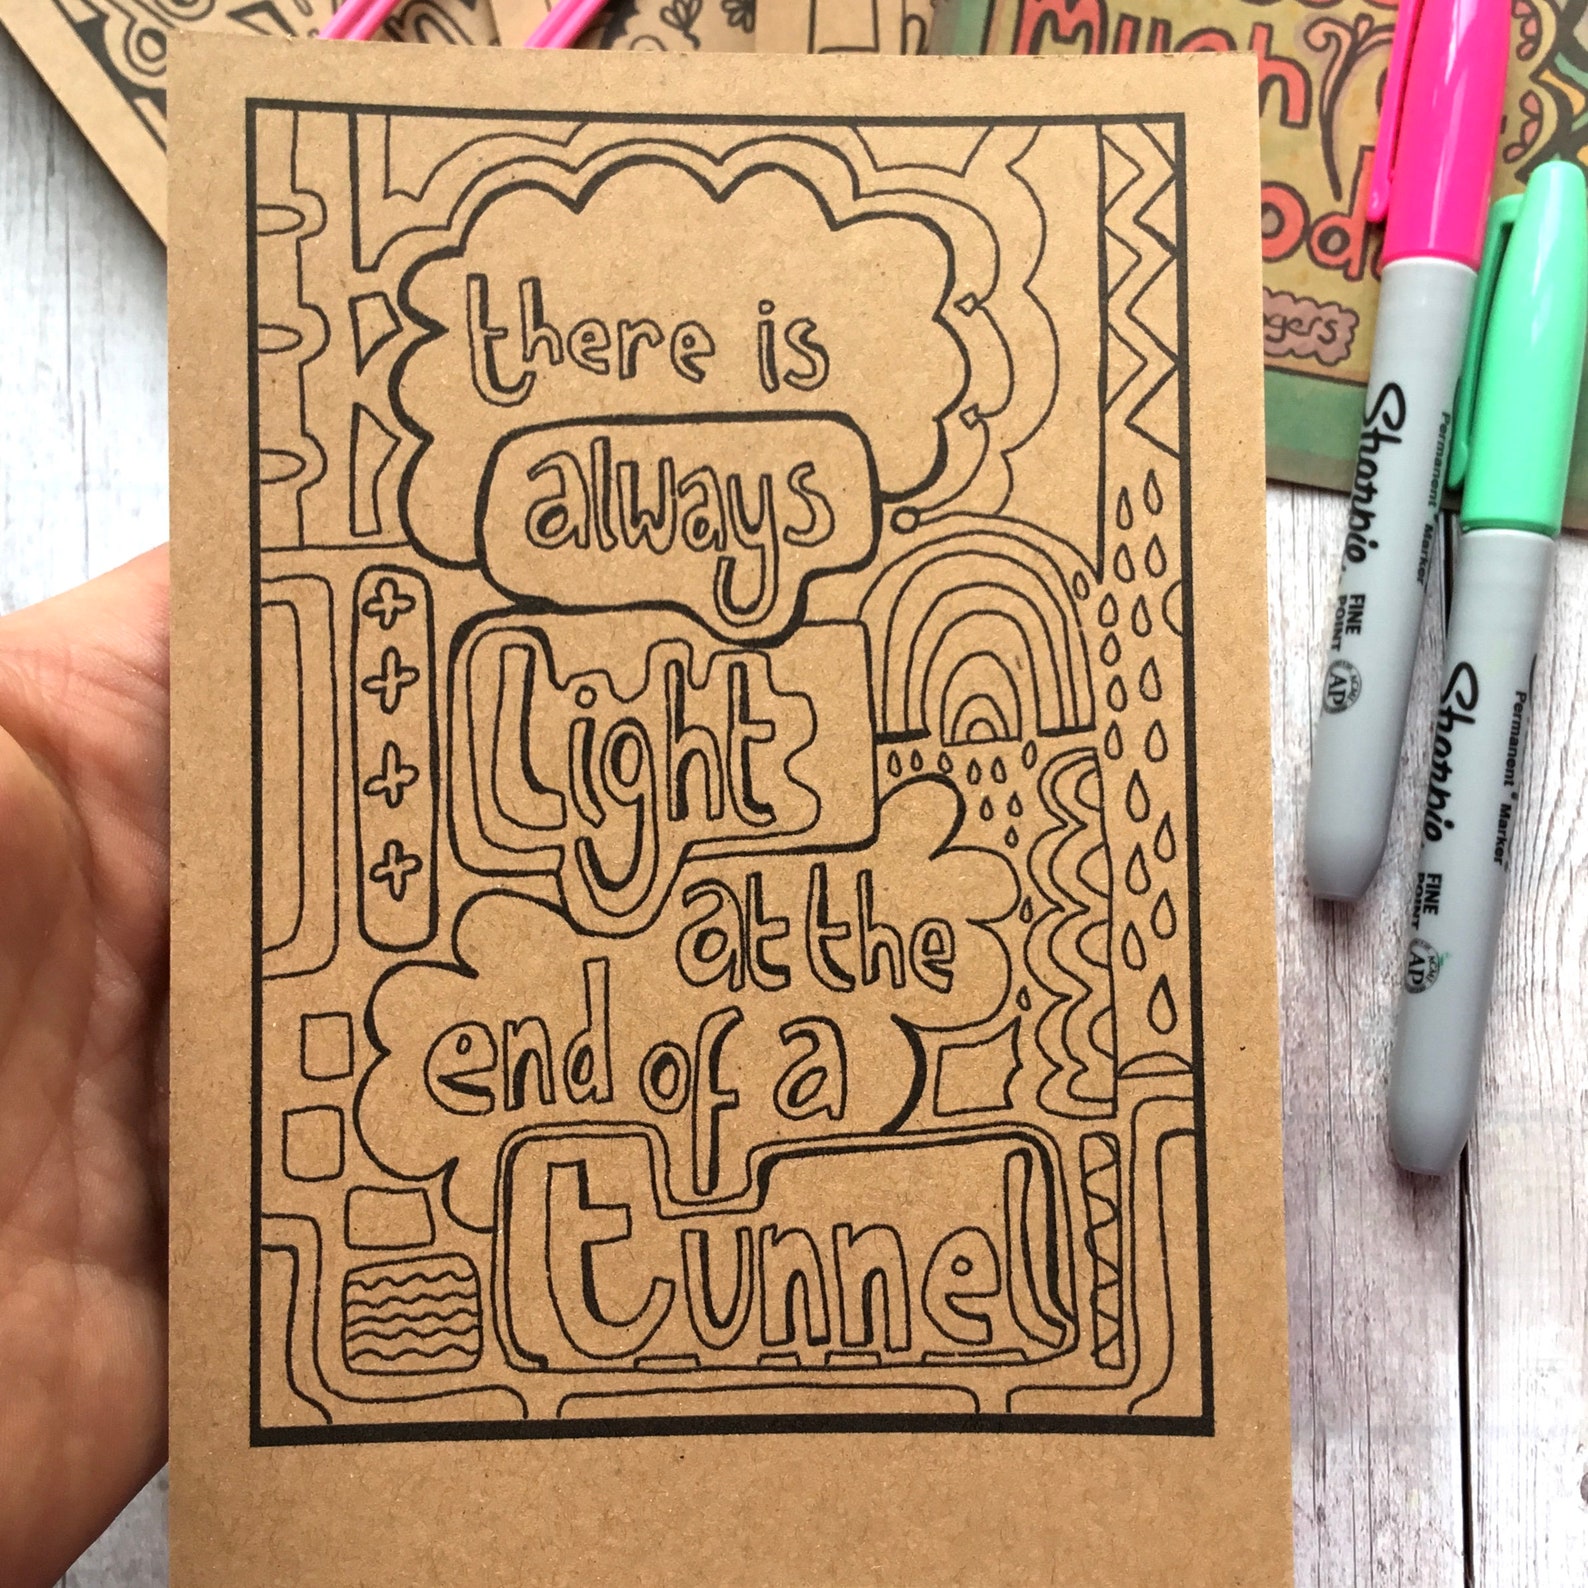 there is
always
Light
at the
end of a
tunnel
Much
Sharpie
Permanent Marker
FINE
POINT
AP
Sharpie
Permanent Marker
FINE
POINT
AP